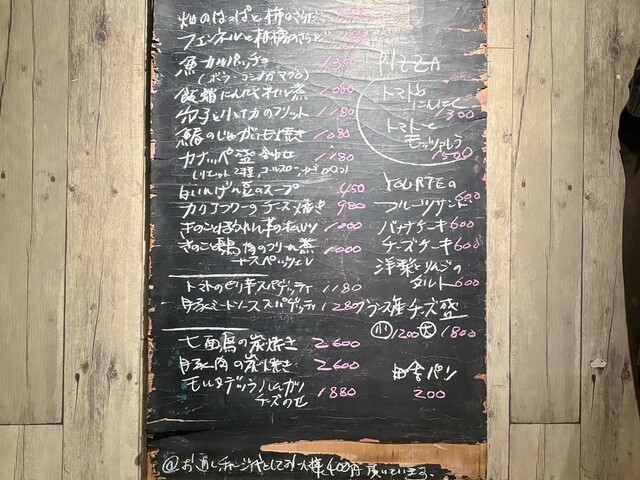 畑のはっぱと柿のさらだ
フェンネルと柑橘のさらだ
魚カルパッチョ 1350
(ボラ・コショウダイ
飯蛸にんにくオイル煮 1080
白子と小イカのフリット 1180
鰆のじゃがいも焼き 1080
カナッペ盛合わせ 1180
(リエット2種,ゴルゴン,
白いんげん豆のスープ 450
カリフラワーのチーズ焼き 980
きのことほうれん草の 1000
きのこと鶏肉のクリーム煮 1000
ナスペッツェレ
トマトのピリ辛スパゲッティ 1180
豚ミートソーススパゲッティ 1280
七面鳥の炭焼き 2600
豚肉の炭焼き 2600
モルタデッラハムカツ
チーズのせ 1880
PIZZA
トマトと
にんにく
1300
トマトと
モッツァレラ
1500
フルーツサンド 600
バナナケーキ 600
チーズケーキ 600
洋梨とりんごの
タルト 600
フランス産チーズ盛
小 1200 大 1800
田舎パン
200
@お通しチャージ代としてお一人様¥400円頂いています。